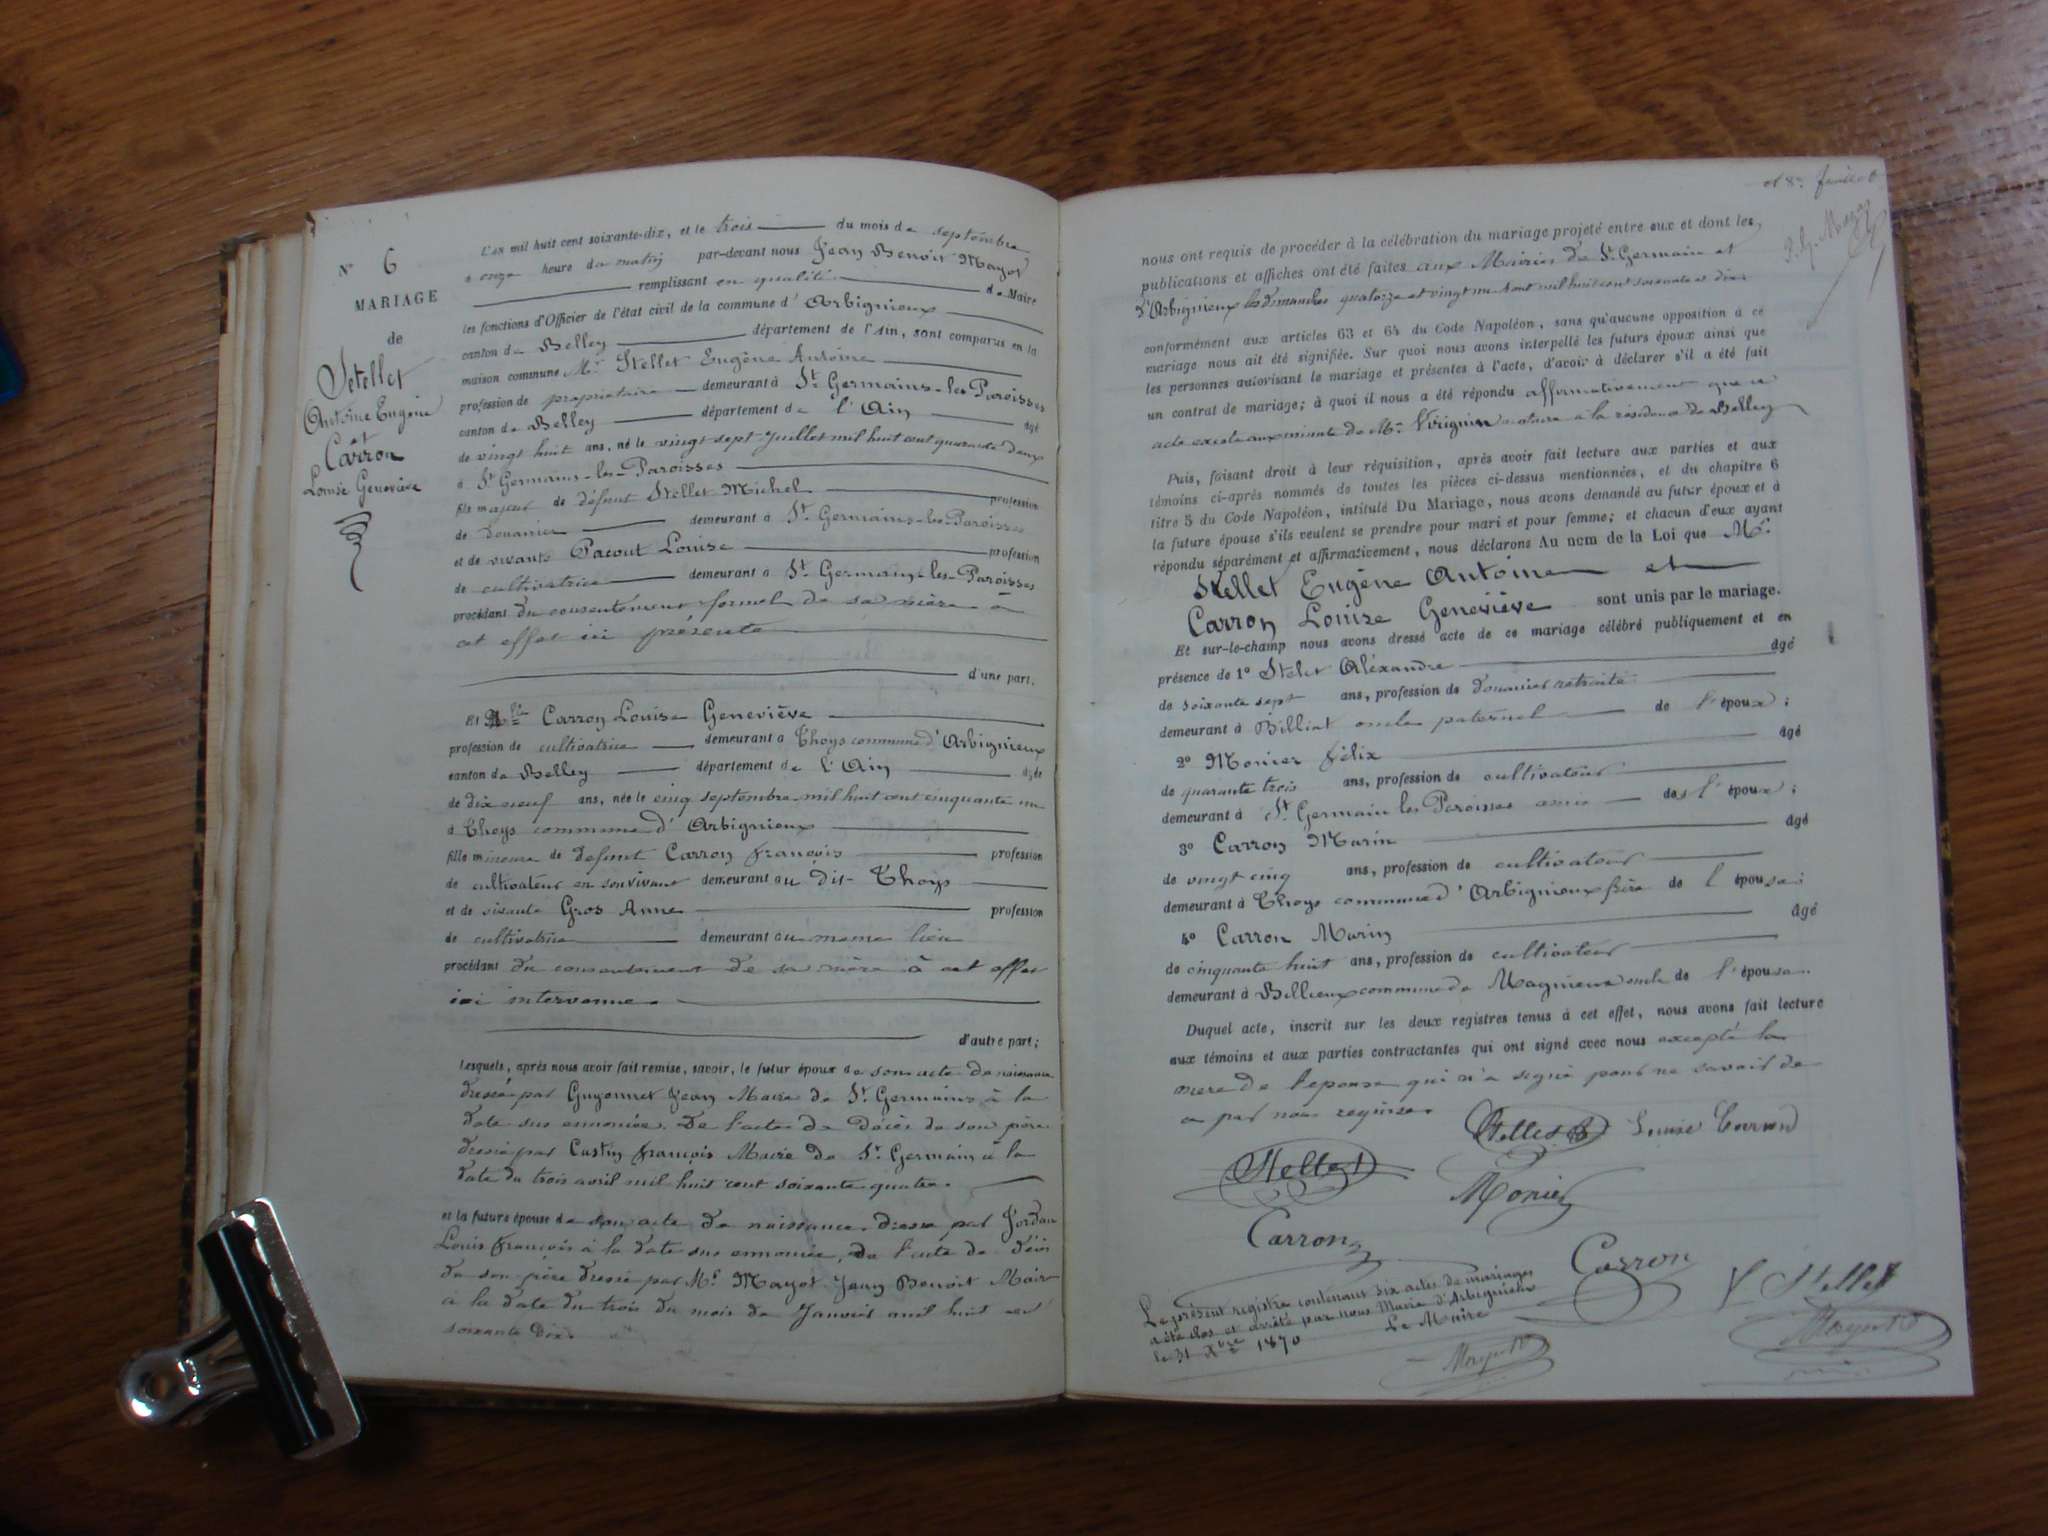 N° 6
MARIAGE
de
Stellet
Antoine Eugène
et
Carron
Louise Geneviève
L'an mil huit cent soixante-dix, et le trois du mois de septembre
à onze heure du matin par-devant nous Jean Benoit Mayot
remplissant en qualité de Maire
les fonctions d'Officier de l'état civil de la commune d'Arbignieux
canton de Belley département de l'Ain, sont comparus en la
maison commune Mr Stellet Eugène Antoine
profession de propriétaire demeurant à St Germains-les-Paroisses
canton de Belley département de l'Ain âgé
de vingt huit ans, né le vingt sept Juillet mil huit cent quarante deux
à St Germains-les-Paroisses
fils majeur de défunt Stellet Michel profession
de douanier demeurant à St Germains-les-Paroisses
et de vivante Pacout Louise profession
de cultivatrice demeurant à St Germain-les-Paroisses
procédant du consentement formel de sa mère à
cet effet ici présente
d'une part.
Et Mlle Carron Louise Geneviève
profession de cultivatrice demeurant à Thoys commune d'Arbignieux
canton de Belley département de l'Ain âgée
de dix neuf ans, née le cinq septembre mil huit cent cinquante un
à Thoys commune d'Arbignieux
fille mineure de defunt Carron françois profession
de cultivateur en son vivant demeurant au dit Thoys
et de vivante Gros Anne profession
de cultivatrice demeurant au meme lieu
procédant du consentement de sa mère à cet effet
ici intervenue.
d'autre part;
Lesquels, après nous avoir fait remise, savoir, le futur époux de son acte de naissance
dressé par Guyonnet Jean Maire de St Germains à la
date sus ennoncée. De l'acte de Décès de son père
dressé par Custin françois Maire de St Germain à la
date du trois avril mil huit cent soixante quatre.
et la future épouse de son acte de naissance dressé par Jordan
Louis françois à la date sus ennoncée, du l'acte de décès
de son père dressé par Mr Mayot Jean Benoit Maire
à la date du trois du mois de Janvier mil huit cent
soixante dix.
et 8e feuillet
nous ont requis de procéder à la célébration du mariage projeté entre eux et dont les
publications et affiches ont été faites aux Mairies de St Germain et
d'Arbignieux les dimanches quatorze et vingt un août mil huit cent soixante et dix
conformément aux articles 63 et 64 du Code Napoléon, sans qu'aucune opposition à ce
mariage nous ait été signifiée. Sur quoi nous avons interpellé les futurs époux ainsi que
les personnes autorisant le mariage et présentes à l'acte, d'avoir à déclarer s'il a été fait
un contrat de mariage; à quoi il nous a été répondu affirmativement que ce
acte existe aux minute de Me notaire à la résidence de Belley
Puis, faisant droit à leur réquisition, après avoir fait lecture aux parties et aux
témoins ci-après nommés de toutes les pièces ci-dessus mentionnées, et du chapitre 6
titre 5 du Code Napoléon, intitulé Du Mariage, nous avons demandé au futur époux et à
la future épouse s'ils veulent se prendre pour mari et pour femme; et chacun d'eux ayant
répondu séparément et affirmativement, nous déclarons Au nom de la Loi que Mr
Stellet Eugène Antoine et
Carron Louise Geneviève sont unis par le mariage.
Et sur-le-champ nous avons dressé acte de ce mariage célébré publiquement et en
présence de 1° Stelet Aléxandre âgé
de soixante sept ans, profession de douanier retraité
demeurant à Billiat oncle paternel de l'époux;
2° Monier félix âgé
de quarante trois ans, profession de cultivateur
demeurant à St Germain les Paroisses amis des l'époux;
3° Carron Marin âgé
de vingt cinq ans, profession de cultivateur
demeurant à Thoys commune d'Arbignieux frère de l'épouse;
4° Carron Marin âgé
de cinquante huit ans, profession de cultivateur
demeurant à Billieux commune de Magnieux oncle de l'épouse.
Duquel acte, inscrit sur les deux registres tenus à cet effet, nous avons fait lecture
aux témoins et aux parties contractantes qui ont signé avec nous excepté la
mere de l'epouse qui n'a signé pour ne savoir de
ce par nous requise.
Stellet Louise Carron
Stellet Monier
Carron Carron Stellet
Le présent registre contenant six actes de mariages
a été clos et arrêté par nous Maire d'Arbignieux
le 31 Xbre 1870 Le Maire
Mayot Mayot